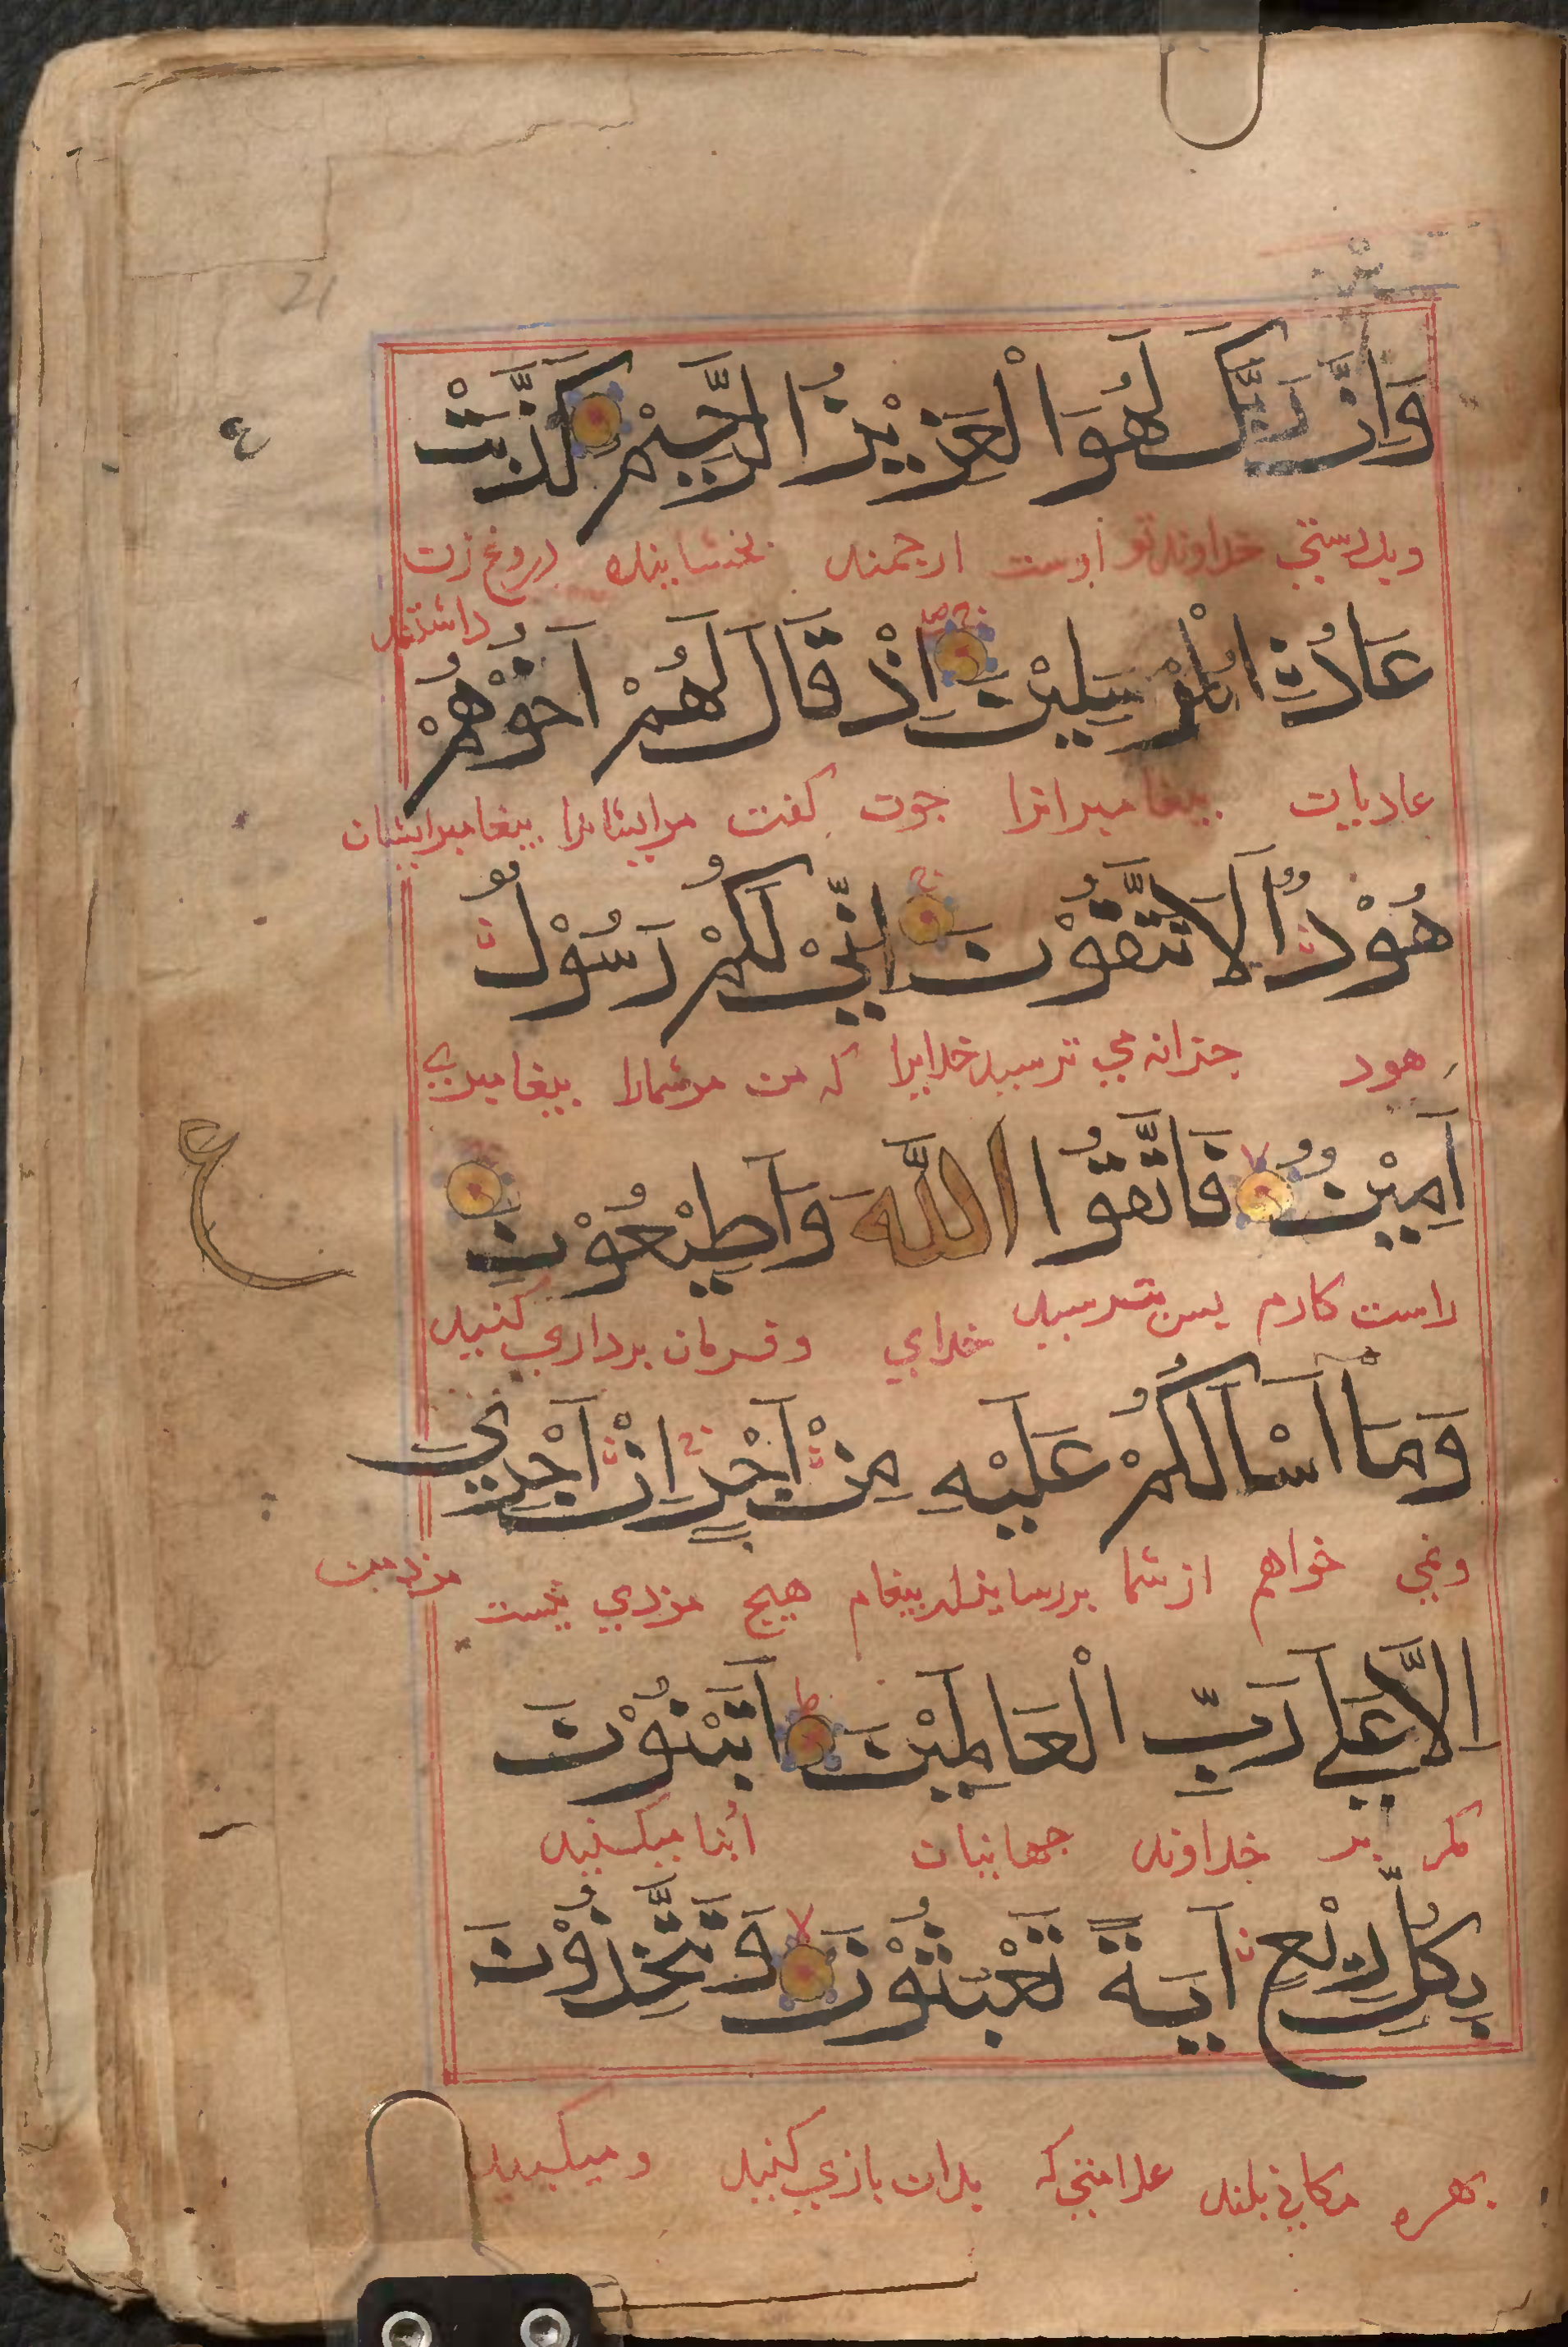 وَاِنَّ رَبَّكَ لَهُوَ الْعَزِيْزُ الرَّحِيْمُ كَذَّبَتْ
وبدرستي خداوند تو اوست ارجمند بخشاينده دروغ زن
داشتند
عَادُ ۨ الْمُرْسَلِيْنَ اِذْ قَالَ لَهُمْ اَخُوْهُمْ
عاديان پيغامبرانرا چون كفت مرايشانرا پيغامبرايشان
هُوْدٌ اَلَا تَتَّقُوْنَ اِنِّيْ لَكُمْ رَسُوْلٌ
هود چرانه مي ترسيد خدايرا كه من مرشمارا پيغامبري
اَمِيْنٌ فَاتَّقُوا اللّٰهَ وَاَطِيْعُوْنِ
راست كارم پس بترسيد خداي وفرمان برداري كنيد
وَمَا اَسْاَلُكُمْ عَلَيْهِ مِنْ اَجْرٍ اِنْ اَجْرِيَ
ونمي خواهم ازشما بررسانيدن پيغام هيچ مزدي نيست مزدمن
اِلَّا عَلٰي رَبِّ الْعَالَمِيْنَ اَتَبْنُوْنَ
مكر بر خداوند جهانيان أبنا ميكنيد
بِكُلِّ رِيْعٍ آيَةً تَعْبَثُوْنَ وَتَتَّخِذُوْنَ
بهره مكاني بلند علامتي كه بدان بازي كنيد وميكيريد
ع
21